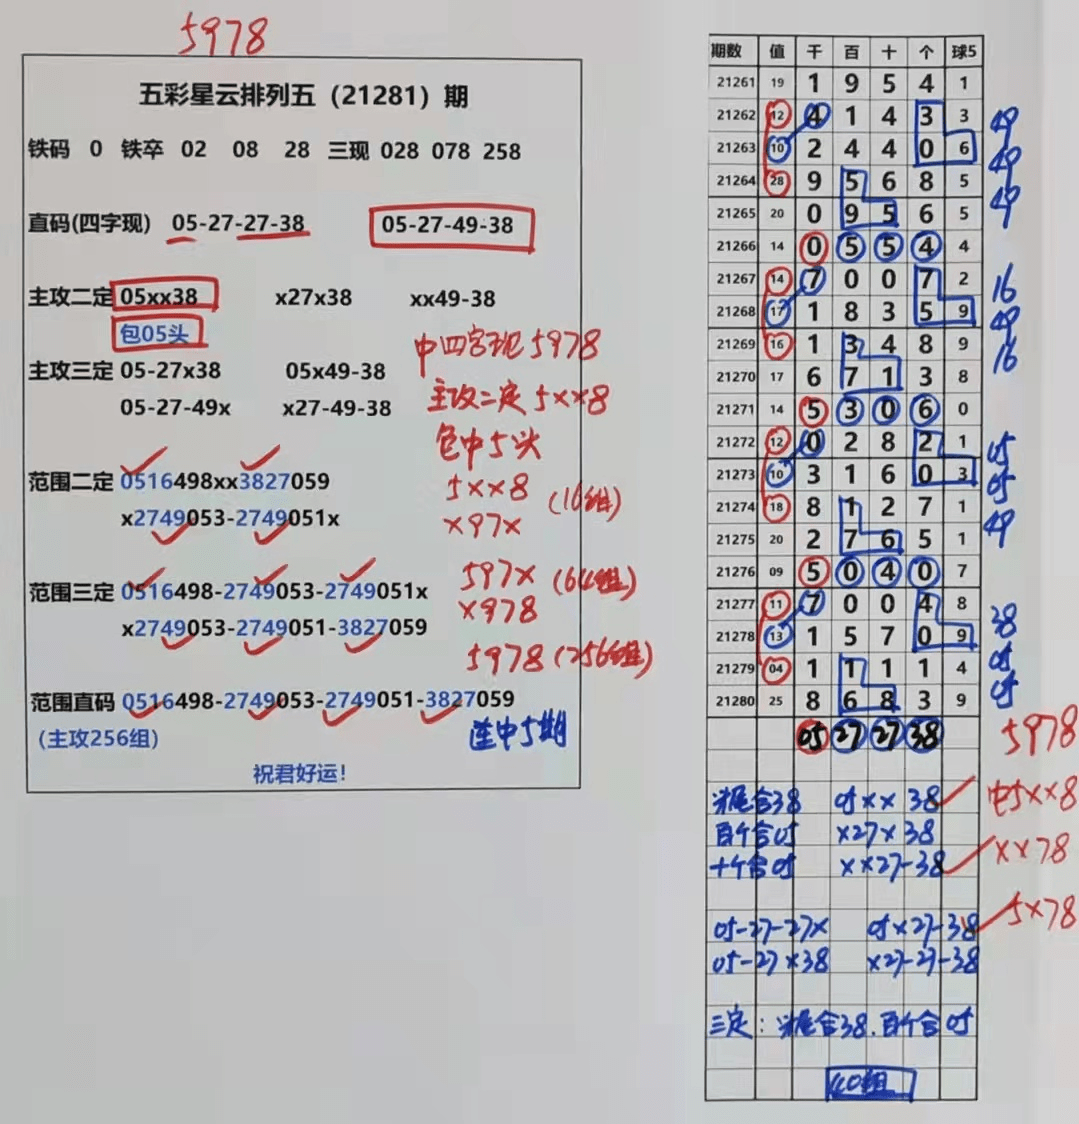 5978
五彩星云排列五（21281）期
铁码 0 铁卒 02 08 28 三现 028 078 258
直码(四字现) 05-27-27-38 05-27-49-38
主攻二定 05xx38 x27x38 xx49-38
包05头
中四字现5978
主攻三定 05-27x38 05x49-38
主攻二定5××8
05-27-49x x27-49-38
包中5头
范围二定 0516498xx3827059
5××8 (16组)
x2749053-2749051x
×97×
范围三定 0516498-2749053-2749051x
597× (64组)
x2749053-2749051-3827059
×978
5978 (256组)
范围直码 0516498-2749053-2749051-3827059
(主攻256组)
连中5期
祝君好运！
期数 值 千 百 十 个 球5
21261 19 1 9 5 4 1
21262 12 4 1 4 3 3 49
21263 10 2 4 4 0 6 49
21264 28 9 5 6 8 5 49
21265 20 0 9 5 6 5
21266 14 0 5 5 4 4
21267 14 7 0 0 7 2 16
21268 17 1 8 3 5 9 49
21269 16 1 3 4 8 9 16
21270 17 6 7 1 3 8
21271 14 5 3 0 6 0
21272 12 0 2 8 2 1 05
21273 10 3 1 6 0 3 05
21274 18 8 1 2 7 1 49
21275 20 2 7 6 5 1
21276 09 5 0 4 0 7
21277 11 7 0 0 4 8 38
21278 13 1 5 7 0 9
21279 04 1 1 1 1 4 05
21280 25 8 6 8 3 9 05
05 27 27 38 5978
头尾合38 05×× 38 中5××8
百个合05 ×27×38
十个合05 ××27-38 ××78
05-27-27× 05×27-38 5×78
05-27×38 ×27-27-38
三定：头尾合38.百个合05
40组